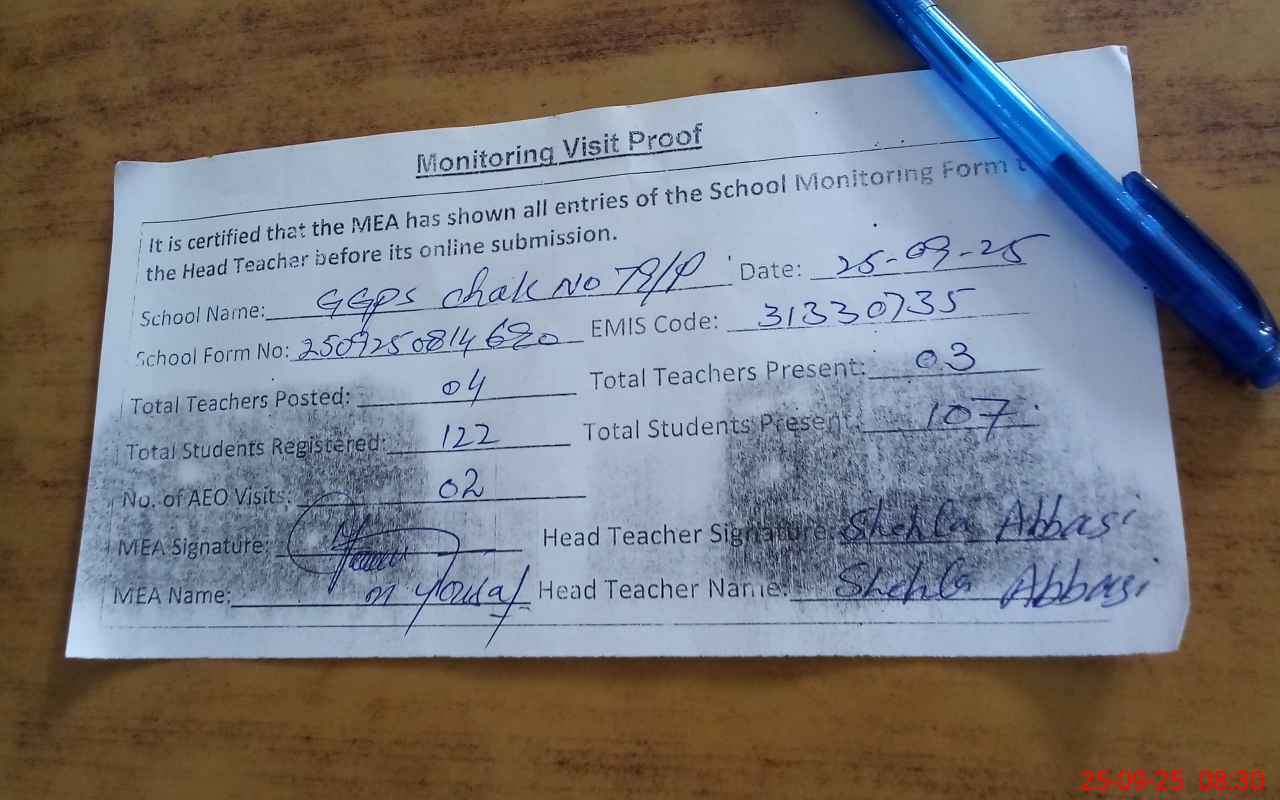 Monitoring Visit Proof
It is certified that the MEA has shown all entries of the School Monitoring Form t
the Head Teacher before its online submission.
School Name: GGPS Chak No 79/P Date: 25-09-25
School Form No: 2509250814680 EMIS Code: 31330735
Total Teachers Posted: 04 Total Teachers Present: 03
Total Students Registered: 122 Total Students Present: 107
No. of AEO Visits: 02
MEA Signature: Head Teacher Signature: Shehla Abbasi
MEA Name: M Yousaf Head Teacher Name: Shehla Abbasi
25-09-25 08:30